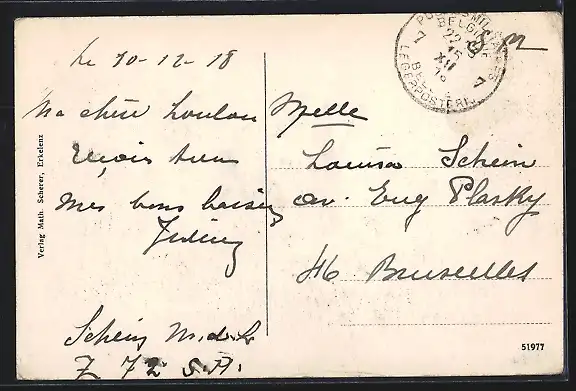 Le 10-12-18
Ma chère Loulou
Reçois tous
mes bons baisers
Schein M.d.L
Z 72 S.A.
Melle
Louisa Schein
av. Eug Plasky
46 Bruxelles
S. M
BELGI
22
15
XII
LEGERPOSTERIJ
7
7
Verlag Math. Scherer, Erkelenz
51977